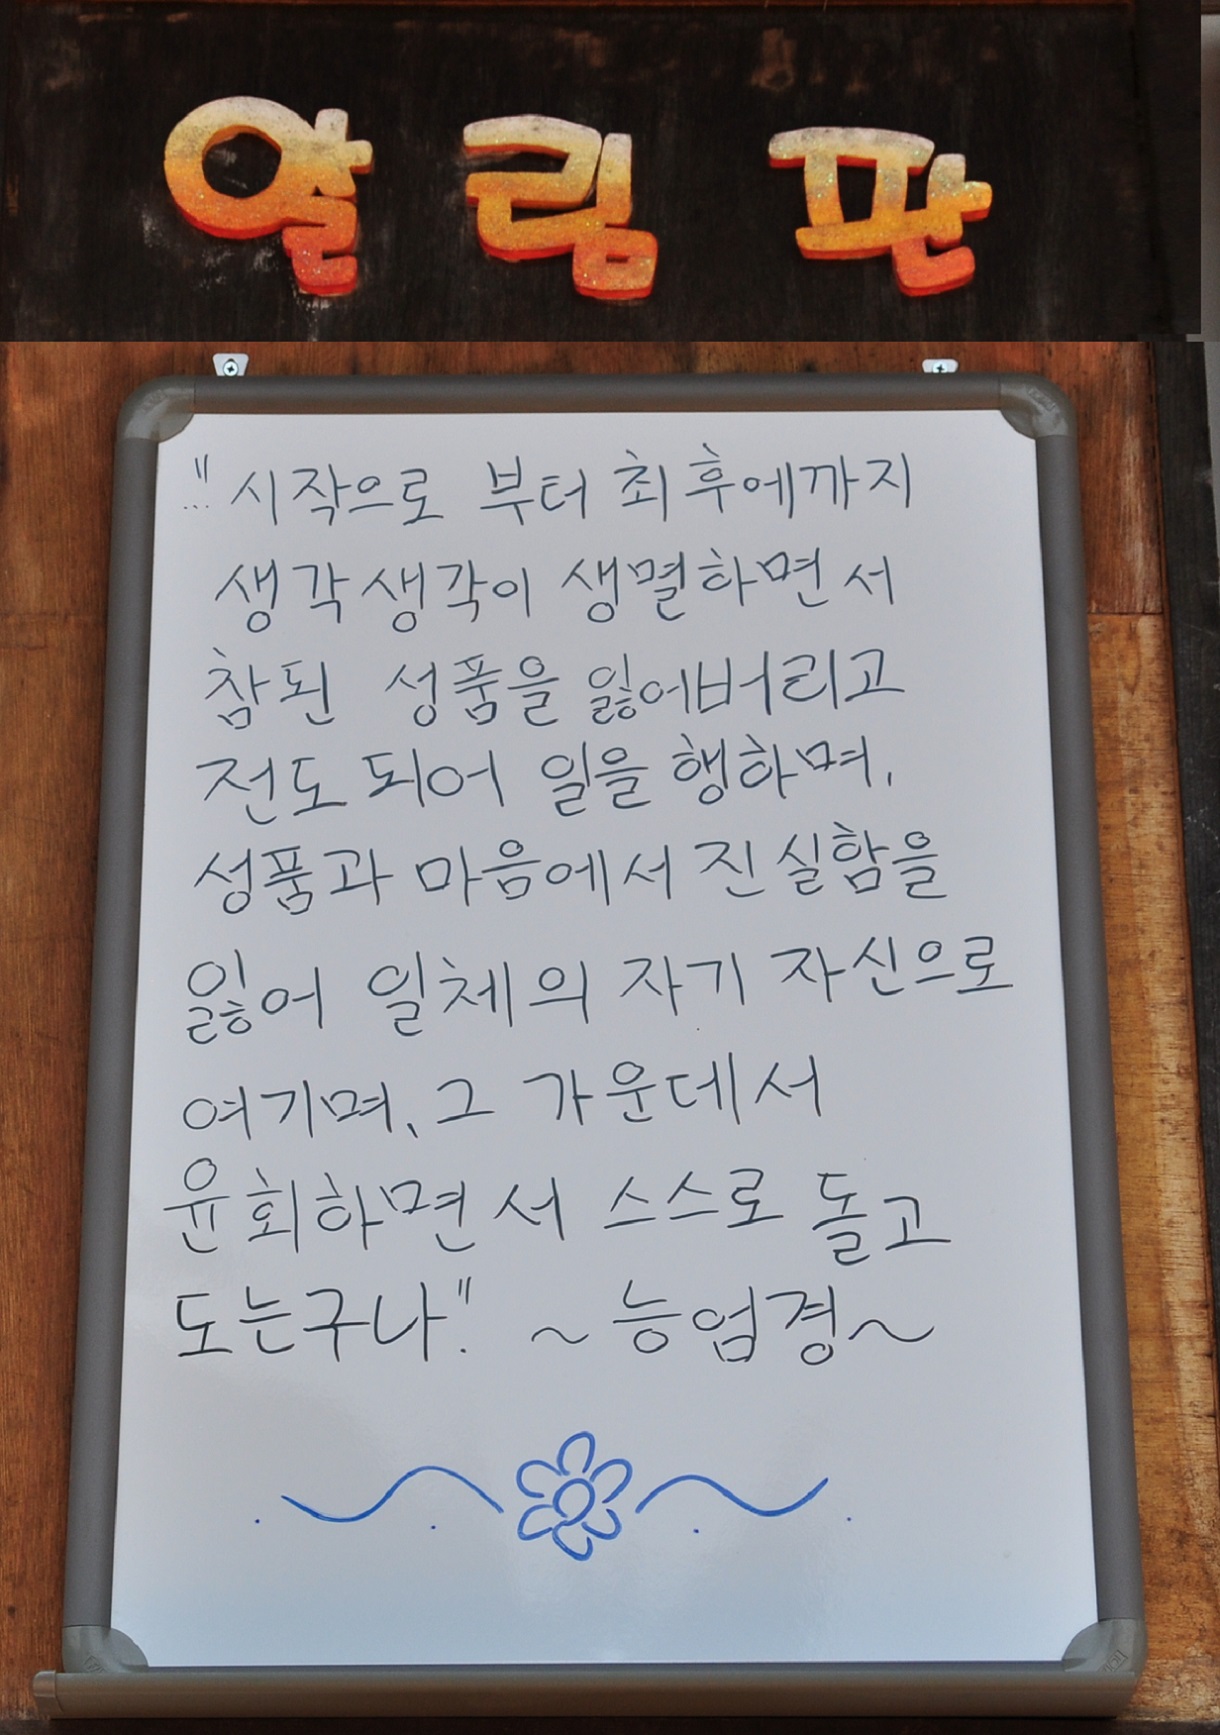 알림판
"시작으로 부터 최후에까지
생각생각이 생멸하면서
참된 성품을 잃어버리고
전도되어 일을 행하며,
성품과 마음에서 진실함을
잃어 일체의 자기 자신으로
여기며, 그 가운데서
윤회하면서 스스로 돌고
도는구나". ~능엄경~